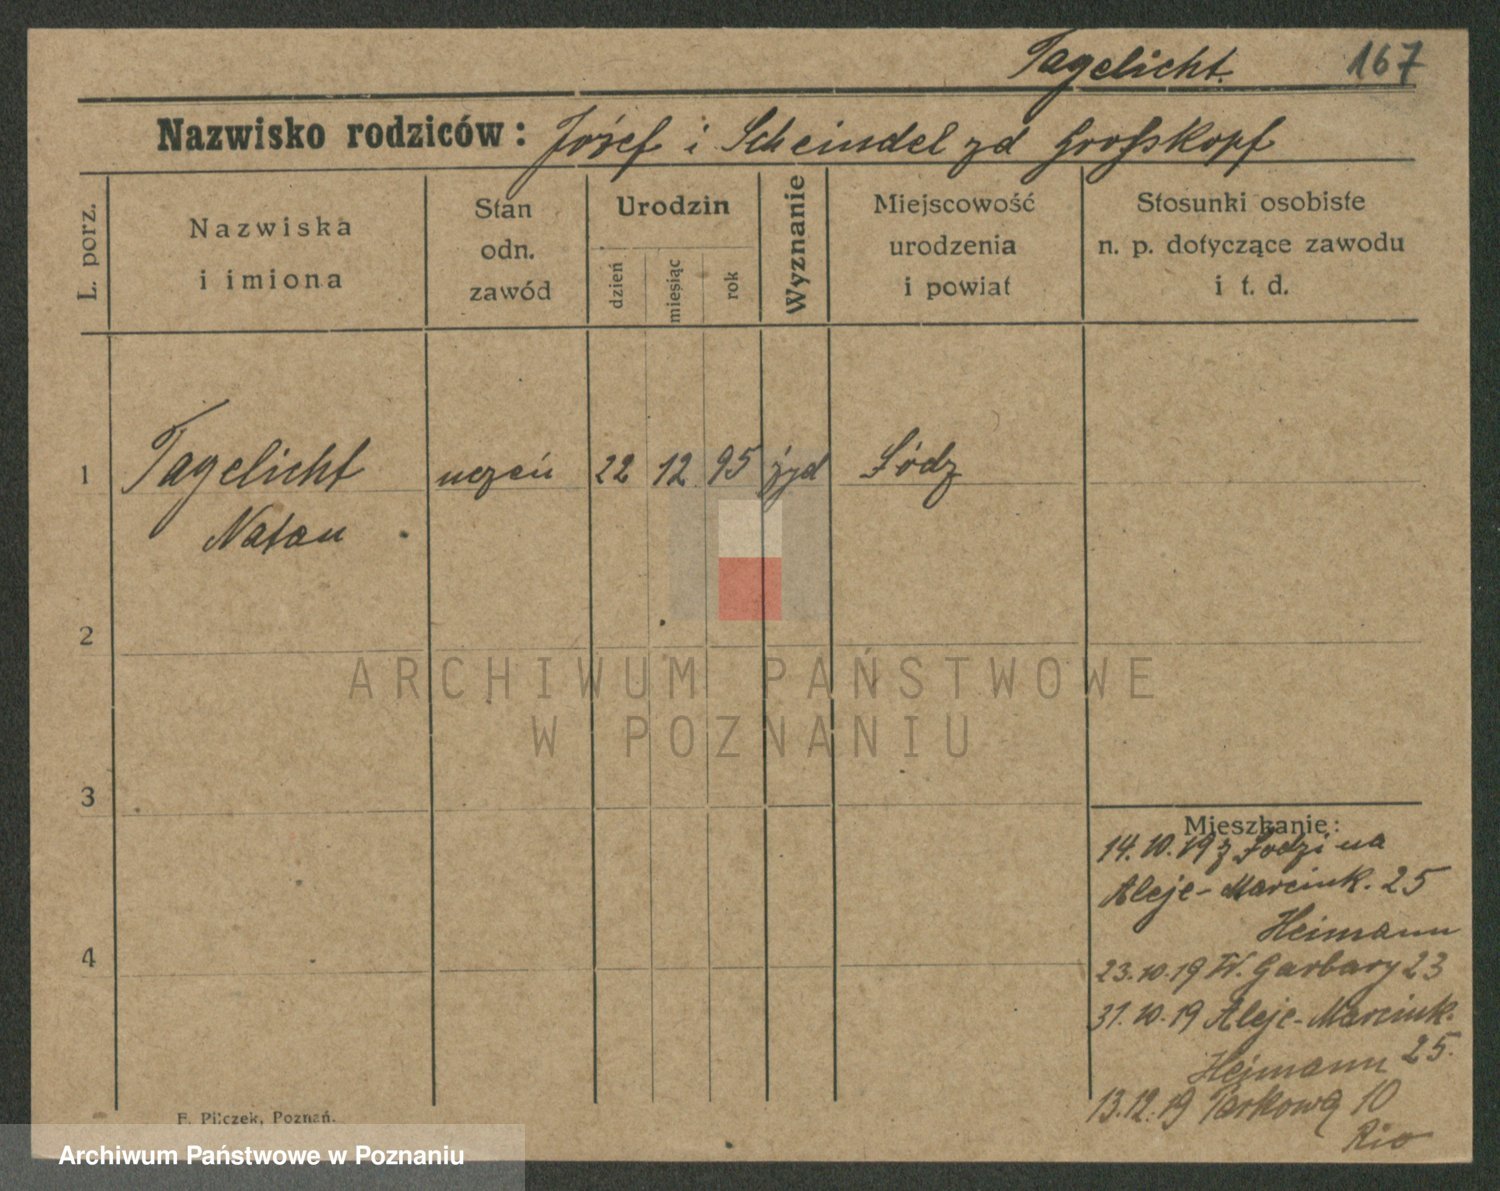 Tagelicht. 167
Nazwisko rodziców: Józef i Scheindel zd Großkopf
L. porz.
Nazwiska
i imiona
Stan
odn.
zawód
Urodzin
dzień
miesiąc
rok
Wyznanie
Miejscowość
urodzenia
i powiat
Stosunki osobiste
n. p. dotyczące zawodu
i t. d.
1 Tagelicht uczeń 22 12 95 żyd Łódz
Natan
2
ARCHIWUM PAŃSTWOWE
W POZNANIU
3
Mieszkanie:
14.10.19 z Łodzi na
Aleje-Marcink. 25
Heimann
4
23.10.19 W. Garbary 23
31.10.19 Aleje-Marcink.
Heimann 25.
13.12.19 10
F. Pilczek, Poznań.
Archiwum Państwowe w Poznaniu